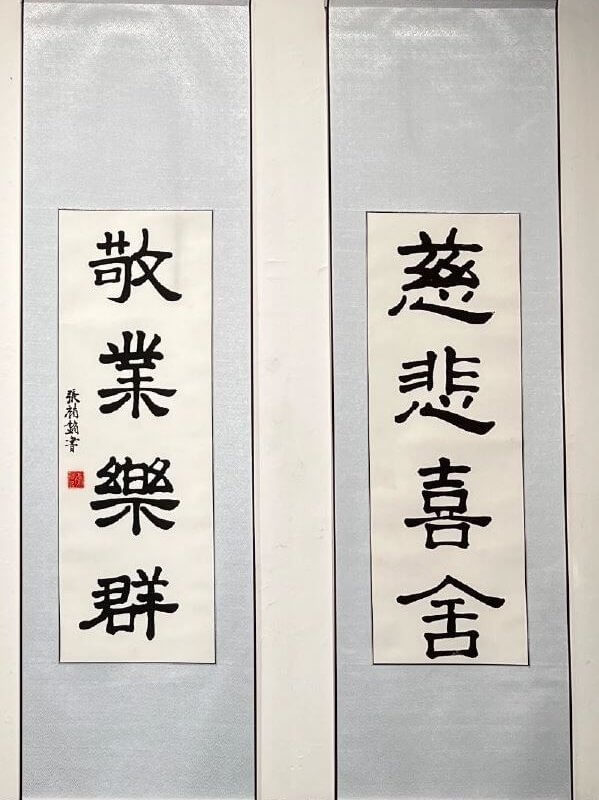 慈悲喜舍
敬業樂群
張柏鎰書